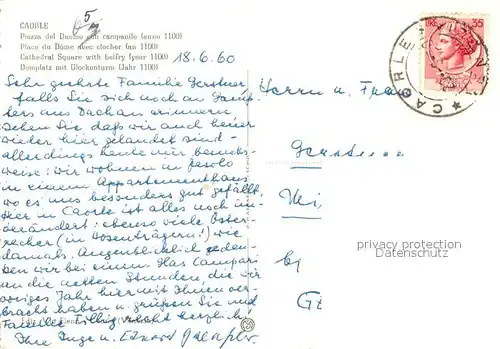 CAORLE
Piazza del Duomo con campanile (anno 1100)
Place du Dôme avec clocher (an 1100)
Cathedral Square with belfry (year 1100)
Domplatz mit Glockenturm (Jahr 1100)
18.6.60
Sehr geehrte Familie Gerstner
falls Sie sich noch an
aus Dachau erinnern,
sehen Sie daß wir auch heuer
wieder hier gelandet sind -
allerdings heute nur
weise: wir wohnen in Jesolo
in einem Appartementhaus
wo es uns besonders gut gefällt.
Hier in Caorle ist alles noch un-
verändert: ebenso viele Öster-
reicher (in Hosenträgern!) wie
damals. Augenblicklich geden-
ken wir bei einem Glas Campari
an die netten Stunden, die wir
voriges Jahr hier mit Ihnen ver-
bracht haben u. grüßen Sie und
Familie recht herzlich
Ihre Inge u. Eduard
LIRE 35
CAORLE
Herrn u. Frau
Gerstner
privacy protection
Datenschutz